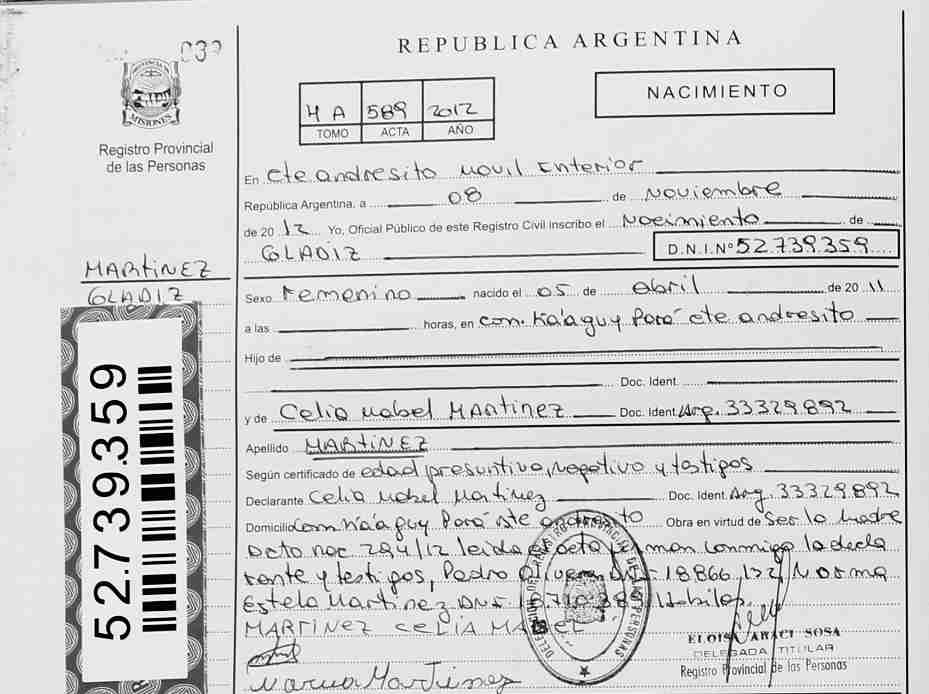 039
REPUBLICA ARGENTINA
PROVINCIA DE
MISIONES
Registro Provincial
de las Personas
4 A 589 2012
TOMO ACTA AÑO
NACIMIENTO
En Cte andresito Movil Interior
República Argentina, a 08 de Noviembre
de 2012 Yo, Oficial Público de este Registro Civil Inscribo el Nacimiento de
GLADIZ D.N.I.Nº52.739.359
MARTINEZ
GLADIZ
Sexo Femenino nacido el 05 de abril de 2011
a las horas, en com. Ka'aguy Porá cte andresito
Hijo de
Doc. Ident.
y de Celia Mabel MARTINEZ Doc. Ident. Arg. 33329892
Apellido MARTINEZ
Según certificado de edad presuntiva, negativo y testigos
Declarante Celia Mabel Martinez Doc. Ident. Arg. 33329.892
Domicilio com Ka'aguy Porá cte andresito Obra en virtud de Ser la Madre
acto nac. 294/12 leida el acta firman conmigo la decla
rante y testigos, Pedro DNI 18866 Norma
Estela Martinez DNI Habiles
MARTINEZ CELIA MABEL
ELOISA ARACI SOSA
DELEGADA TITULAR
Registro Provincial de las Personas
Norma Martinez
52.739.359